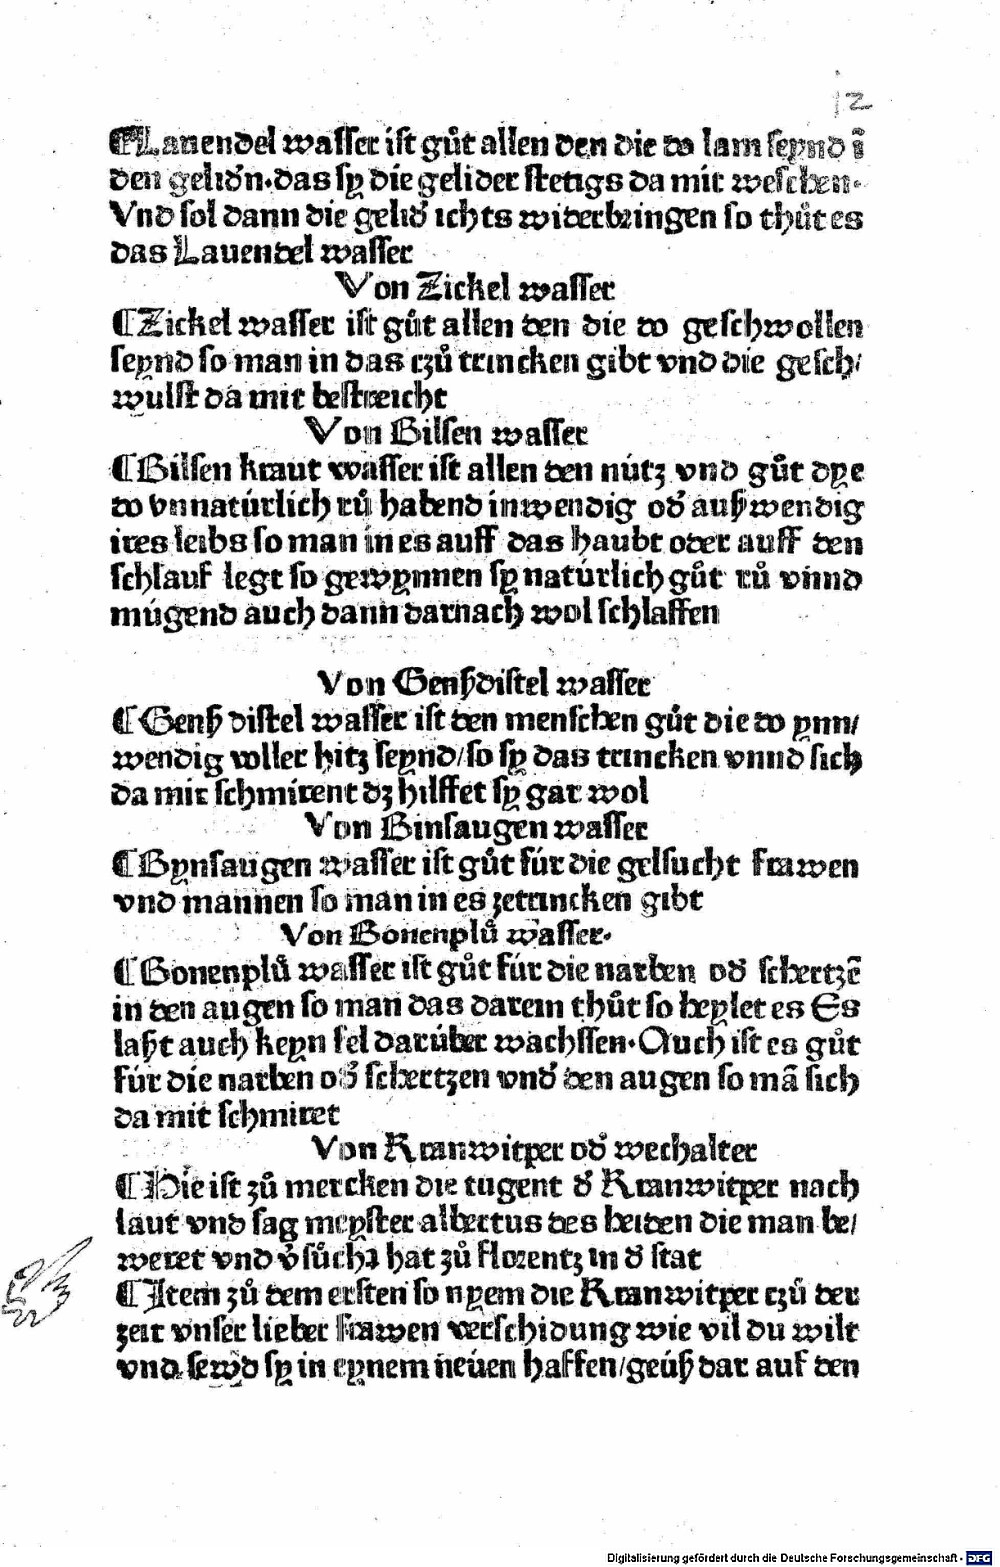 12
¶Lauendel wasser ist gůt allen den die do lam seynd ĩ
den gelidn̄. das sy die gelider stetigs da mit weschen.
Vnd sol dann die gelid̄ ichts widerbringen so thůt es
das Lauendel wasser
Von Zickel wasser
¶Zickel wasser ist gůt allen den die do geschwollen
seynd so man in das czů trincken gibt vnd die gesch/
wulst da mit bestreicht
Von Bilsen wasser
¶Bilsen kraut wasser ist allen den nútz vnd gůt dye
do vnnatúrlich rů habend inwendig od̄ außwendig
ires leibs so man in es auff das haubt oder auff den
schlauf legt so gewynnen sy natúrlich gůt rů vnnd
múgend auch dann darnach wol schlaffen
Von Genßdistel wasser
¶Genß distel wasser ist den menschen gůt die do ynn/
wendig voller hitz seynd/so sy das trincken vnnd sich
da mit schmirent dz hilffet sy gar wol
Von Binsaugen wasser
¶Bynsaugen wasser ist gůt fúr die gelsucht frawen
vnd mannen so man in es zetrincken gibt
Von Bonenplů wasser.
¶Bonenplů wasser ist gůt fúr die narben od̄ schertzē
in den augen so man das darein thůt so heylet es Es
laßt auch keyn fel darúber wachssen. Auch ist es gůt
fúr die narben od̄ schertzen vnd̄ den augen so mā sich
da mit schmiret
Von Kranwitper od̄ wechalter
¶Hie ist zů mercken die tugent d̄ Kranwitper nach
laut vnd sag meyster albertus des heiden die man be/
weret vnd v̄sůcht hat zů florentz in d̄ stat
¶Item zů dem ersten so nyem die Kranwitper czů der
zeit vnser lieber frawen verschidung wie vil du wilt
vnd sewd sy in eynem neúen haffen/geúß dar auf den
Digitalisierung gefördert durch die Deutsche Forschungsgemeinschaft - DFG